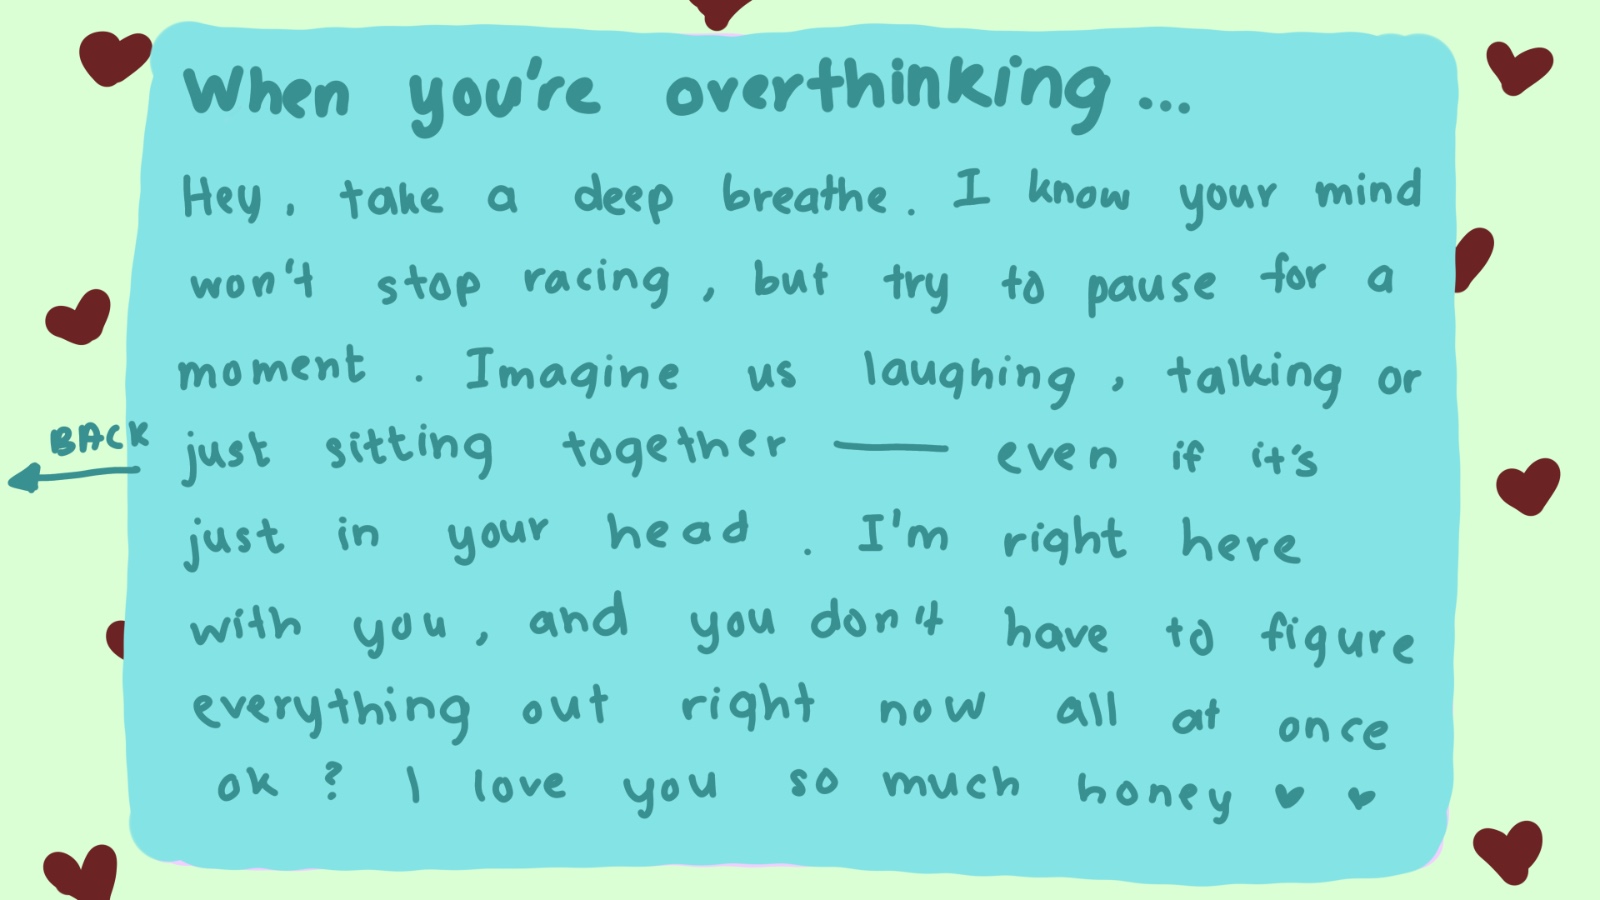 When you're overthinking...
Hey, take a deep breathe. I know your mind
won't stop racing, but try to pause for a
moment. Imagine us laughing, talking or
just sitting together — even if it's
just in your head. I'm right here
with you, and you don't have to figure
everything out right now all at once
ok? I love you so much honey ♥ ♥
BACK